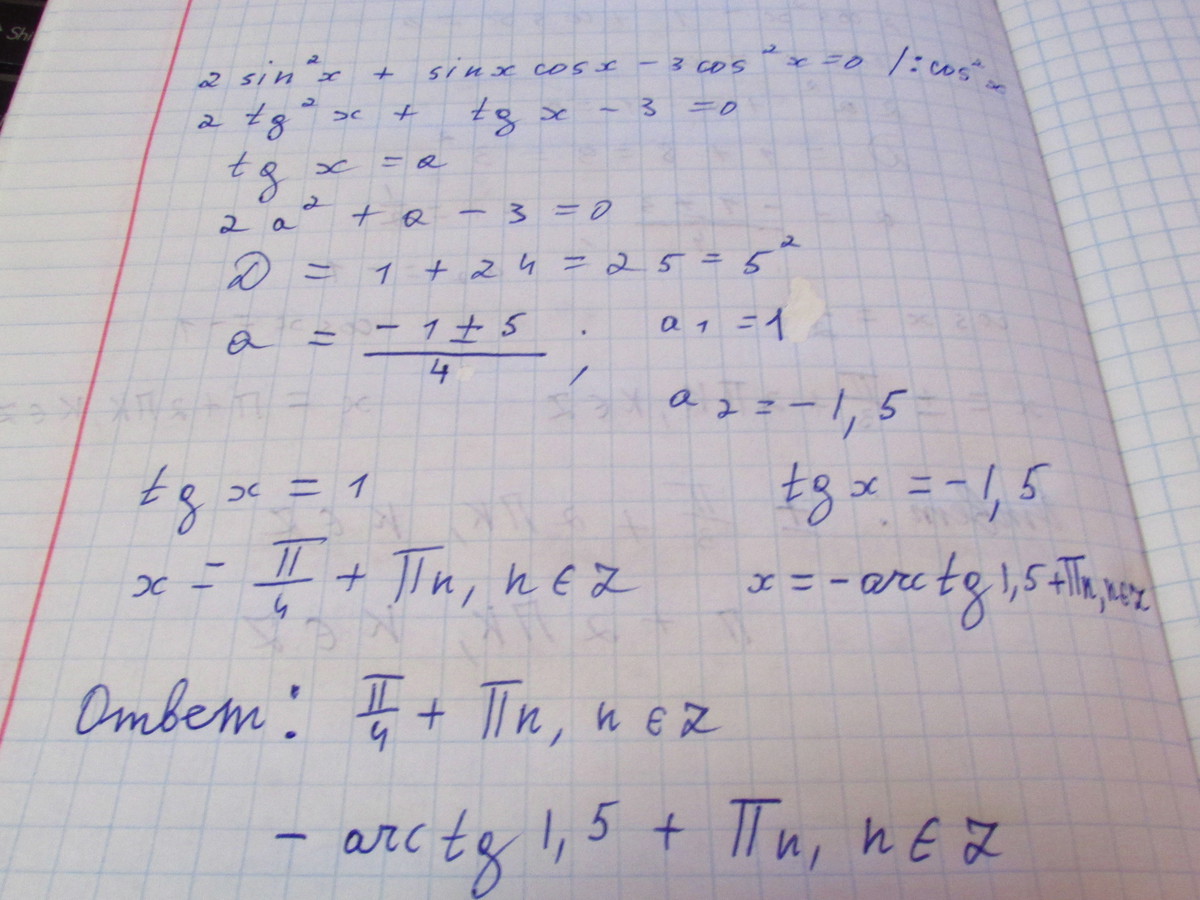 2 sin²x + sinx cosx - 3 cos²x = 0 /: cos²x
2 tg²x + tg x - 3 = 0
tg x = a
2a² + a - 3 = 0
D = 1 + 24 = 25 = 5²
a = (-1 ± 5)/4 ; a₁ = 1
a₂ = -1,5
tg x = 1 tg x = -1,5
x = π/4 + πn, n ∈ Z x = -arctg 1,5 + πn, n ∈ Z
Ответ: π/4 + πn, n ∈ Z
- arctg 1,5 + πn, n ∈ Z